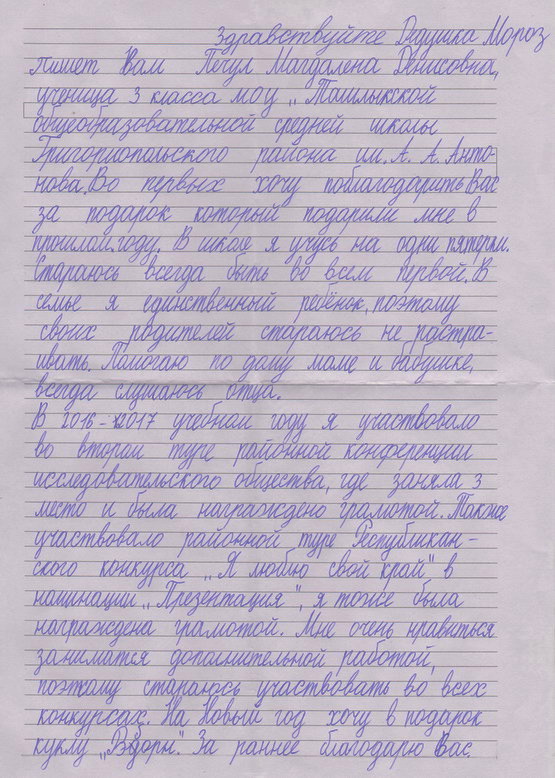 Здравствуйте Дедушка Мороз
Пишет Вам Пегул Магдалена Денисовна,
ученица 3 класса МОУ „Ташлыкской
общеобразовательной средней школы
Григориопольского района им. А. А. Анто-
нова. Во первых хочу поблагодарить Вас
за подарок который подарили мне в
прошлом году. В школе я учусь на одни пятерки.
Стараюсь всегда быть во всем первой. В
семье я единственный ребёнок, поэтому
своих родителей стараюсь не растра-
ивать. Помогаю по дому маме и бабушке,
всегда слушаюсь отца.
В 2016-2017 учебном году я участвовало
во втором туре районной конференции
исследовательского общества, где заняла 3
место и была награждено грамотой. Также
участвовало районной туре Республикан-
ского конкурса „Я люблю свой край" в
наминации „Презентация", я тоже была
награждена грамотой. Мне очень нравиться
заниматся дополнительной работой,
поэтому стараюсь участвовать во всех
конкурсах. На Новый год хочу в подарок
куклу За раннее благодарю Вас.